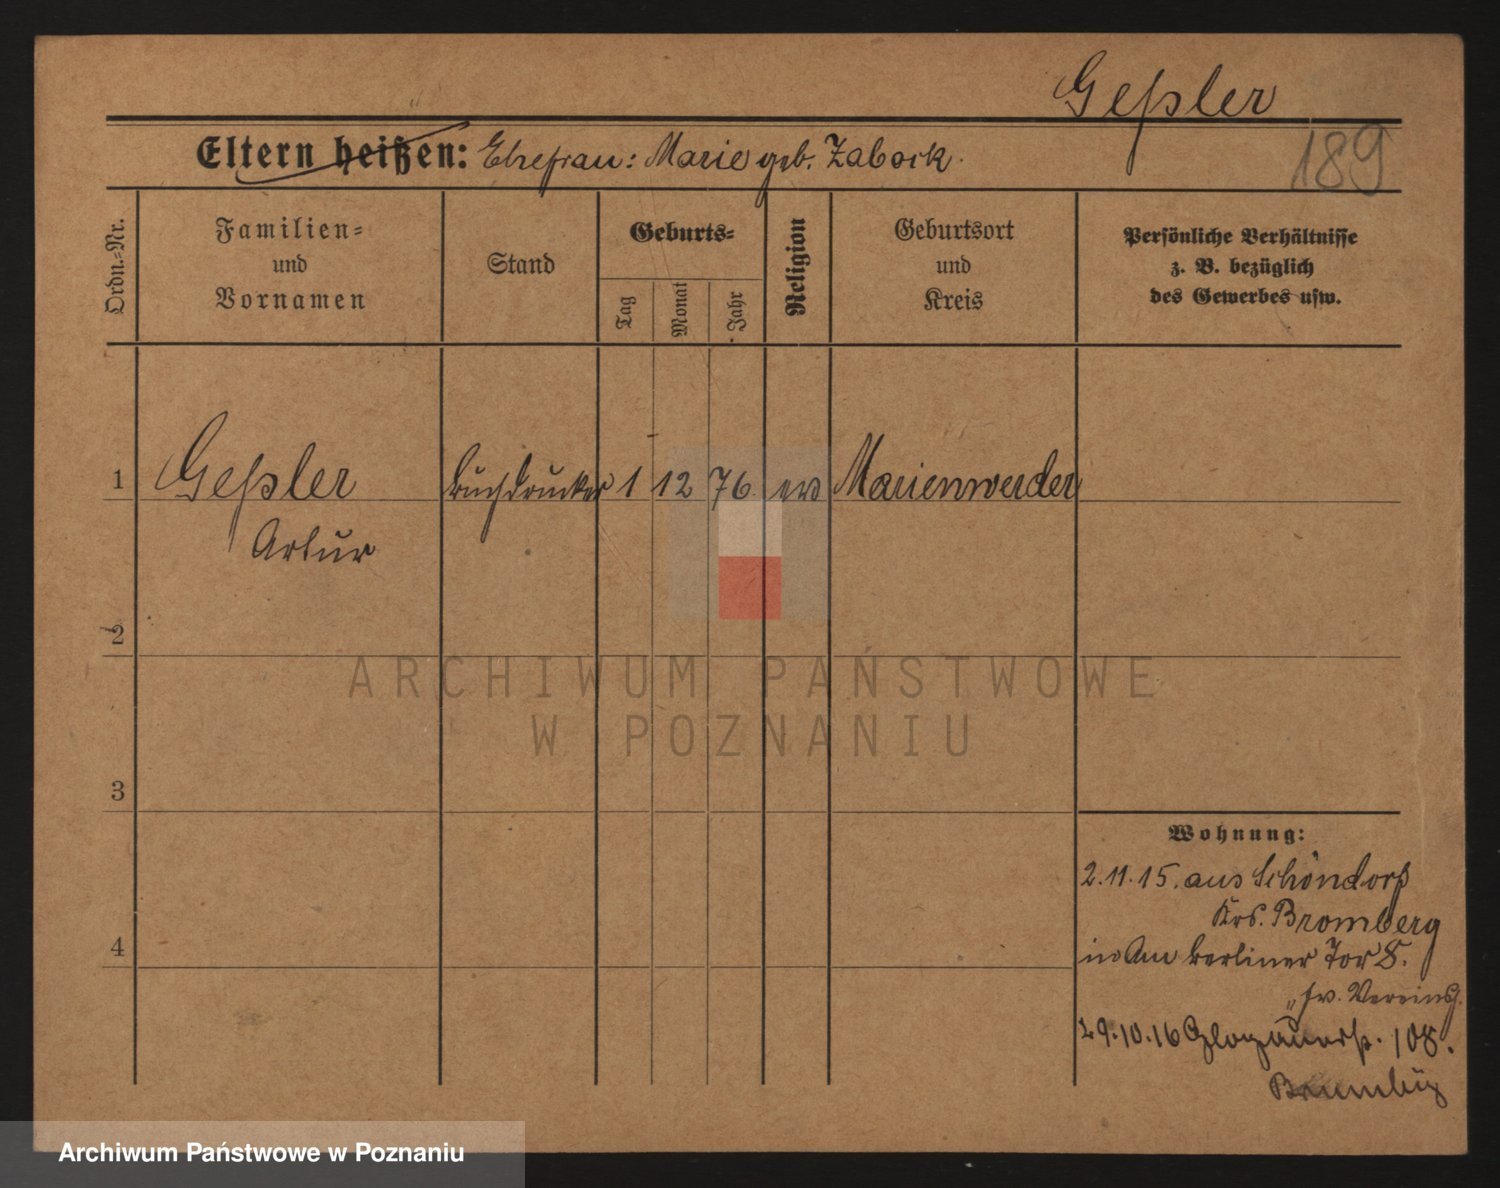 Geßler
Eltern heißen: Ehefrau: Marie geb. Zabock.
189
Ordn.-Nr.
Familien-
und
Vornamen
Stand
Geburts-
Tag
Monat
Jahr
Religion
Geburtsort
und
Kreis
Persönliche Verhältnisse
z. B. bezüglich
des Gewerbes usw.
1 Geßler Buchdrucker 1 12 76 ev Marienwerder
Artur
2
3
4
Wohnung:
2.11.15. aus Schöndorf
Krs. Bromberg
in Am Berliner Tor 8.
29.10.16 Glogauerstr. 108.
ARCHIWUM PAŃSTWOWE
W POZNANIU
Archiwum Państwowe w Poznaniu